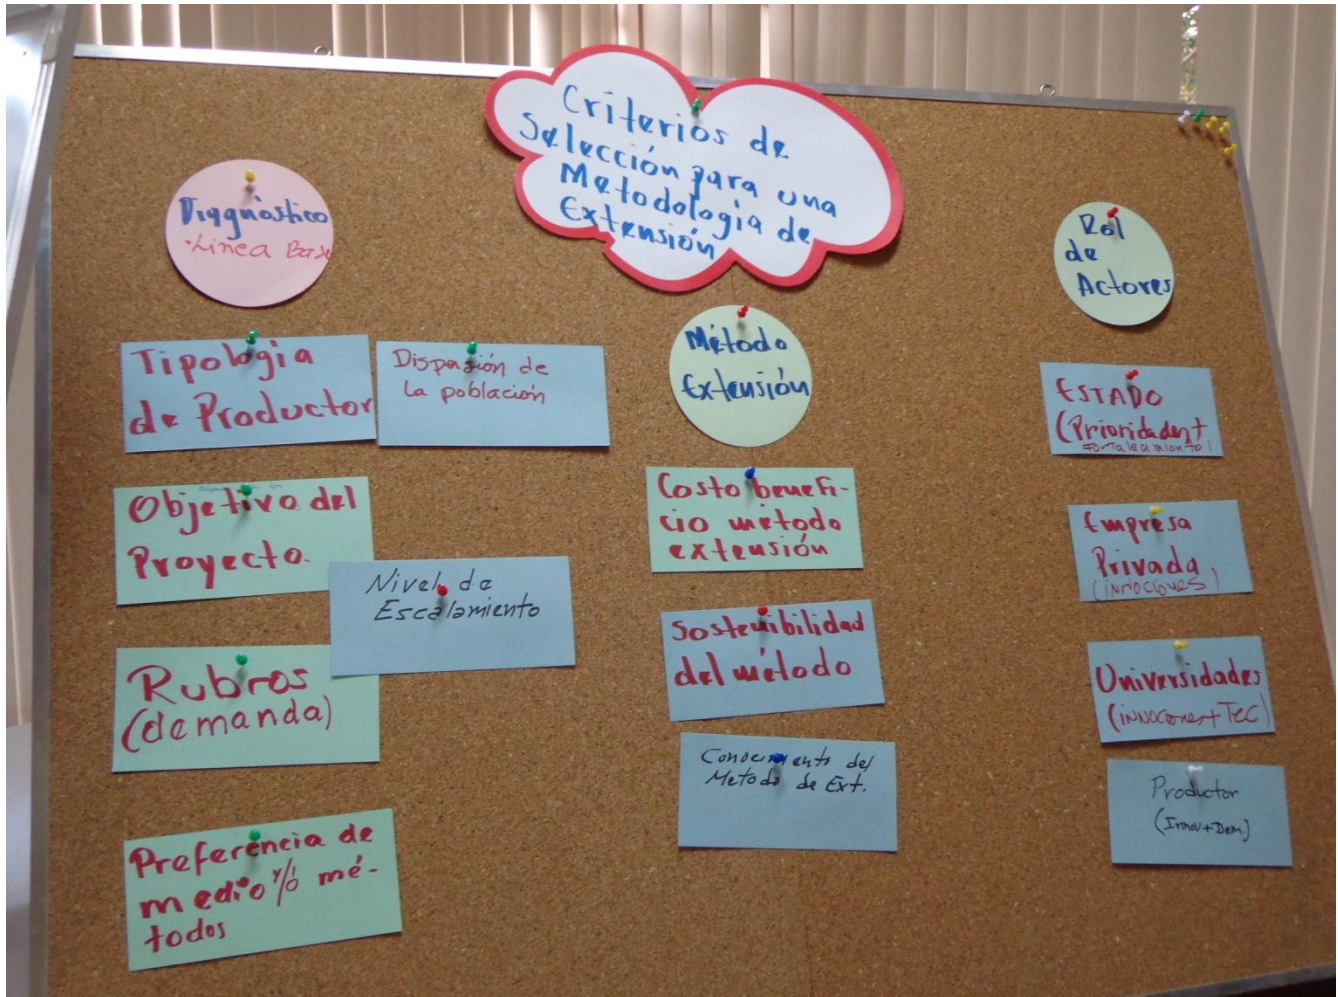 Criterios de
Selección para una
Metodología de
Extensión
Diagnóstico
•Línea Base
Tipología
de Productor
Dispersión de
la población
Objetivo del
Proyecto.
Nivel de
Escalamiento
Rubros
(demanda)
Preferencia de
medio y/ó mé-
todos
Método
Extensión
Costo benefi-
cio método
extensión
Sostenibilidad
del método
Conocimiento del
Metodo de Ext.
Rol
de
Actores
ESTADO
(Prioridades+
fortalecimiento)
Empresa
Privada
Universidades
Productor
(Innov+Dem.)